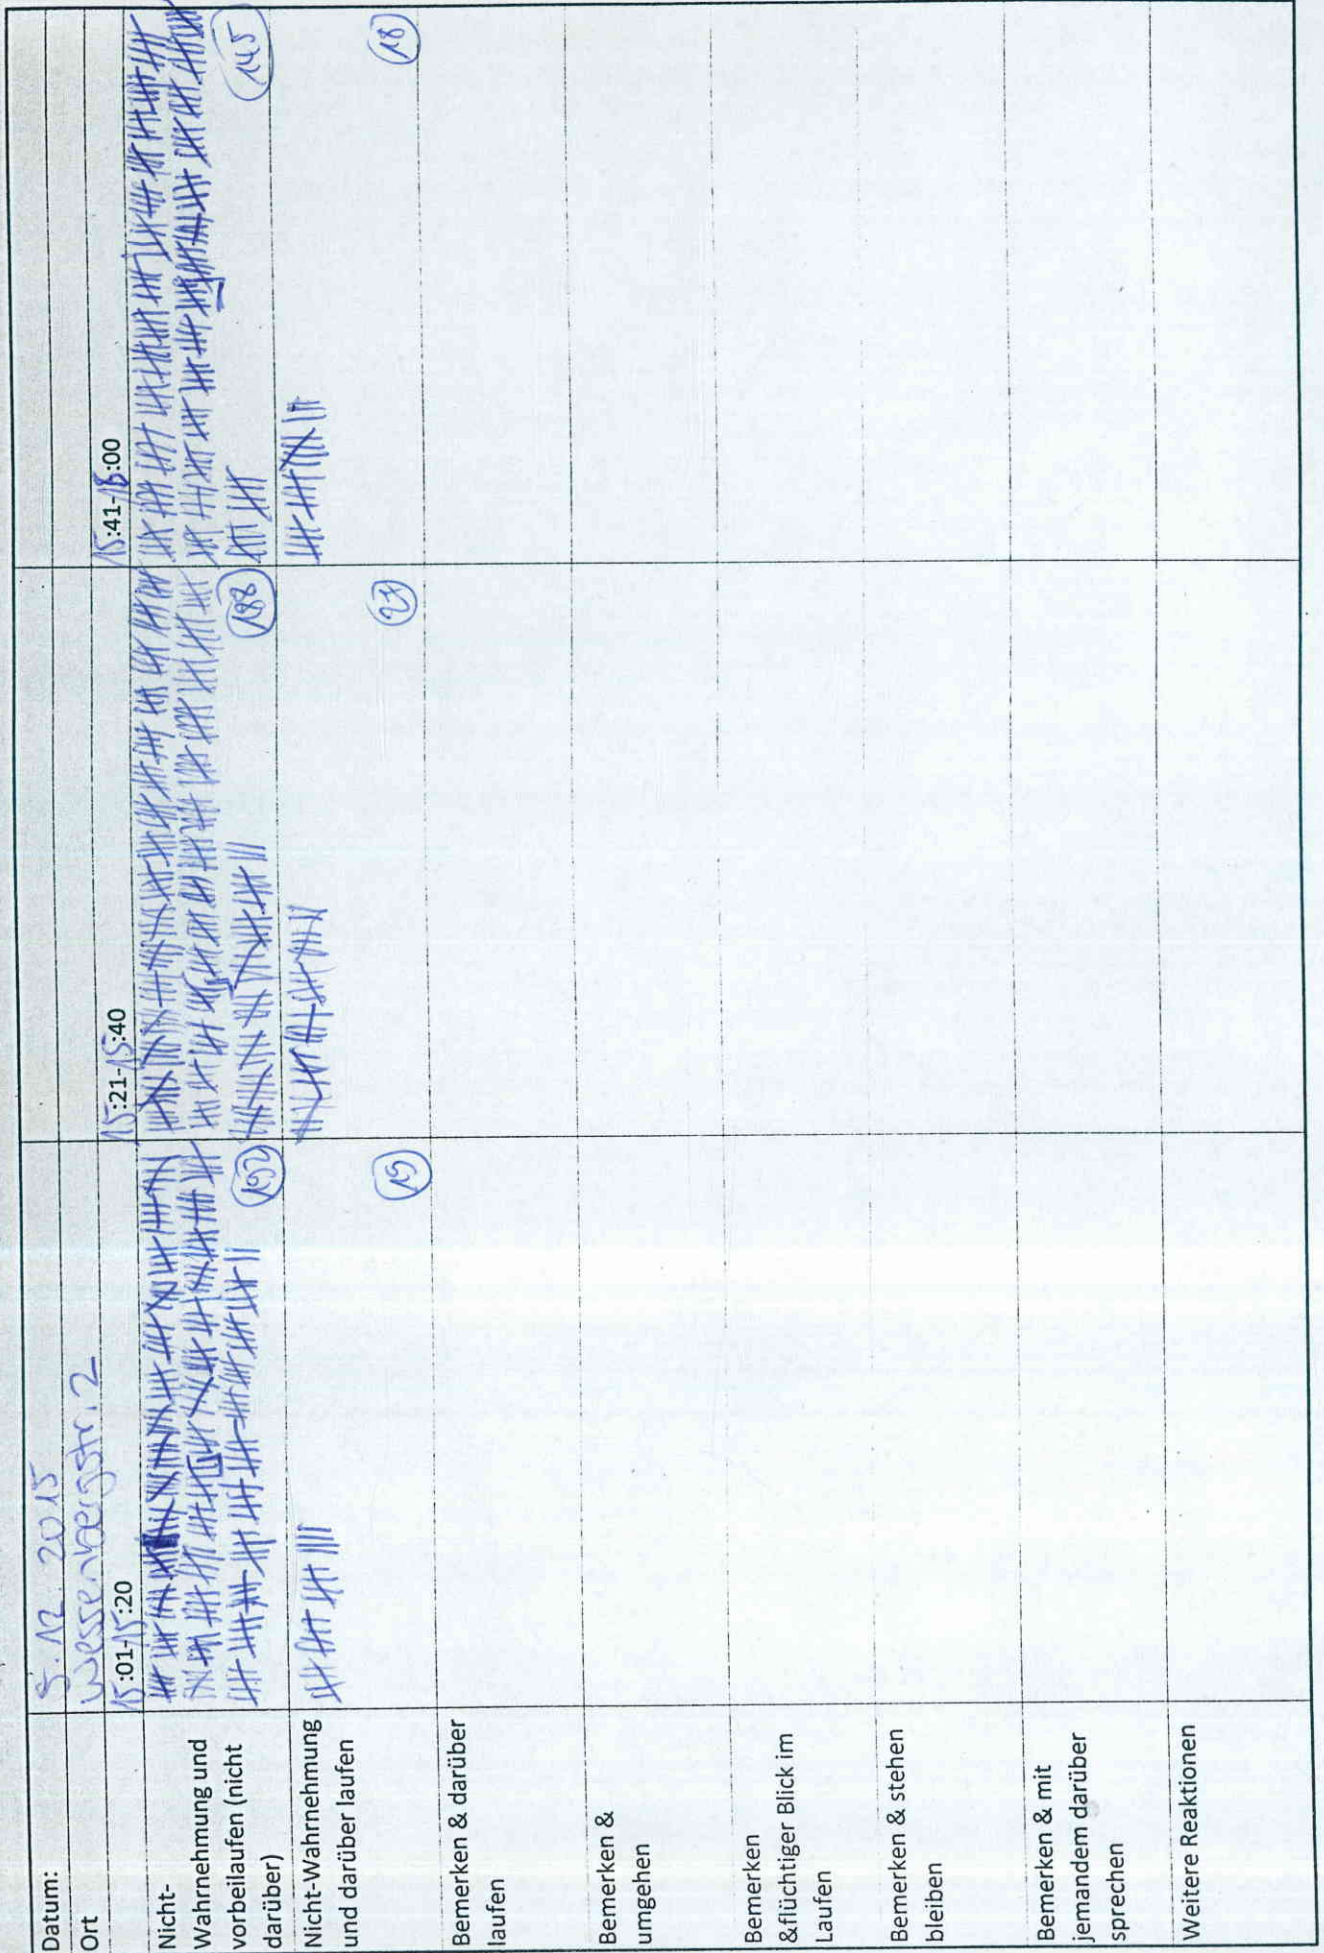 Datum: 5.12.2015
Ort Wessenbergstr. 2
15:01-15:20 15:21-15:40 15:41-16:00
Nicht-
Wahrnehmung und
vorbeilaufen (nicht
darüber) 192 188 145
Nicht-Wahrnehmung
und darüber laufen 19 18
Bemerken & darüber
laufen
Bemerken &
umgehen
Bemerken
&flüchtiger Blick im
Laufen
Bemerken & stehen
bleiben
Bemerken & mit
jemandem darüber
sprechen
Weitere Reaktionen